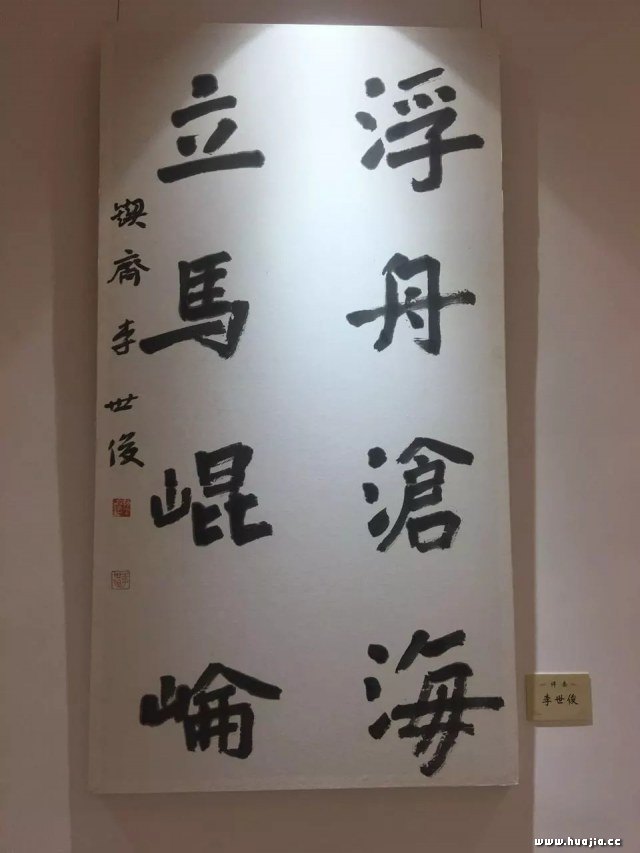 浮舟滄海
立馬崐崘
鍥齋李世俊
李世俊
www.huajia.cc